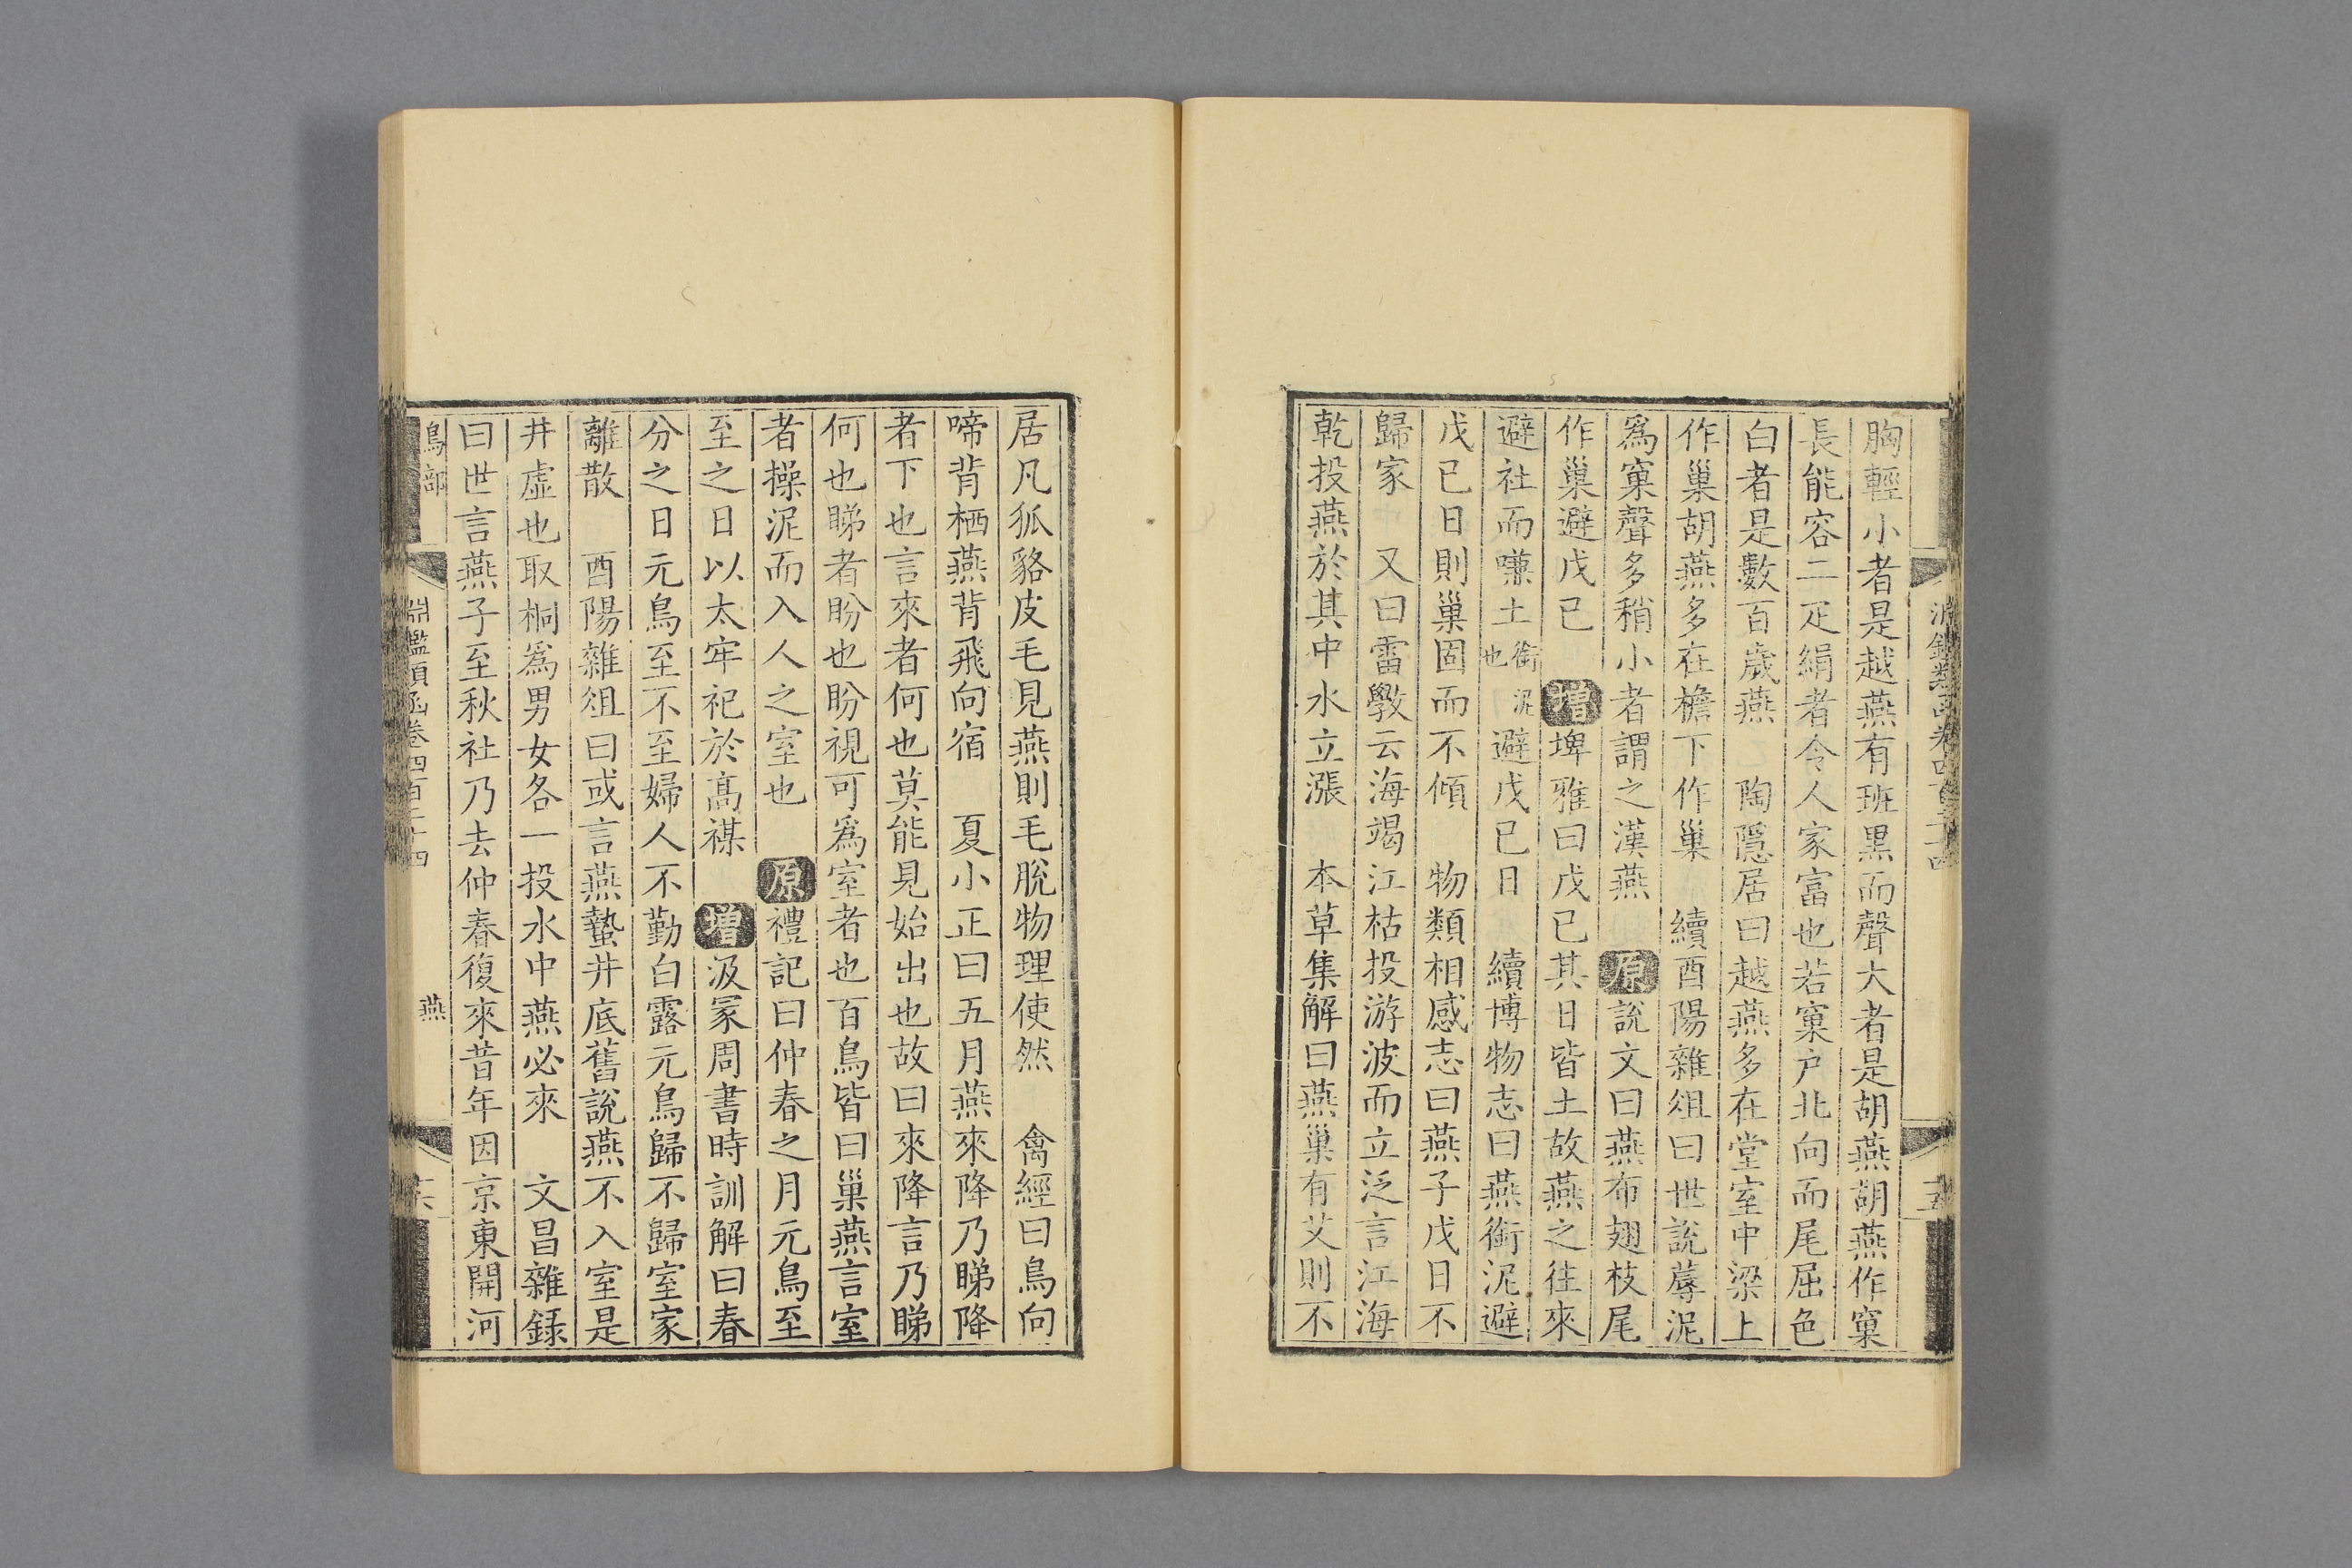 胸輕小者是越燕有班黑而聲大者是胡燕胡燕作窠
長能容二疋絹者令人家富也若窠户北向而尾屈色
白者是數百歲燕　陶隱居曰越燕多在堂室中梁上
作巢胡燕多在檐下作巢　續酉陽雜俎曰世說蓐泥
爲窠聲多稍小者謂之漢燕　原說文曰燕布翅枝尾
作巢避戊已　增埤雅曰戊已其日皆土故燕之往來
避社而嗛土銜泥也避戊已日　續博物志曰燕銜泥避
戊已日則巢固而不傾　物類相感志曰燕子戊日不
歸家　又曰雷斆云海竭江枯投游波而立泛言江海
乾投燕於其中水立漲　本草集解曰燕巢有艾則不
居凡狐貉皮毛見燕則毛脫物理使然　禽經曰鳥向
啼背栖燕背飛向宿　夏小正曰五月燕來降乃睇降
者下也言來者何也莫能見始出也故曰來降言乃睇
何也睇者盼也盼視可爲室者也百鳥皆曰巢燕言室
者操泥而入人之室也　原禮記曰仲春之月元鳥至
至之日以太牢祀於高禖　增汲冢周書時訓解曰春
分之日元鳥至不至婦人不勤白露元鳥歸不歸室家
離散　酉陽雜俎曰或言燕蟄井底舊說燕不入室是
井虛也取桐爲男女各一投水中燕必來　文昌雜録
曰世言燕子至秋社乃去仲春復來昔年因京東開河
鳥部
淵鑑類函卷四百二十四
燕